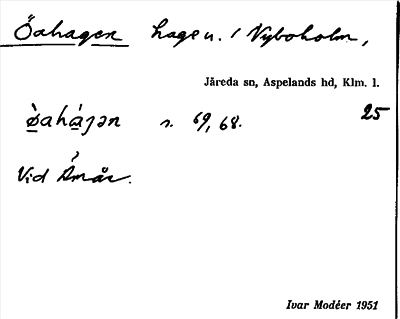 Öahagen hagen. / Nyboholm,
Jåreda sn, Aspelands hd, Klm. l.
öahaɡən s. 69, 68. 25
Vid Åmår.
Ivar Modéer 1951